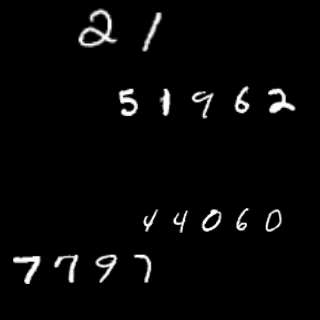 21
51962
44060
7797